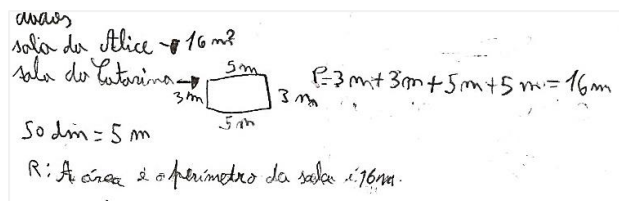 sala da Alice → 16 m²
sala da Catarina →
5 m
3 m
3 m
5 m
P=3 m+3m+5m+5 m=16m
50 dm = 5 m
R: A área e o perímetro da sala é 16m.